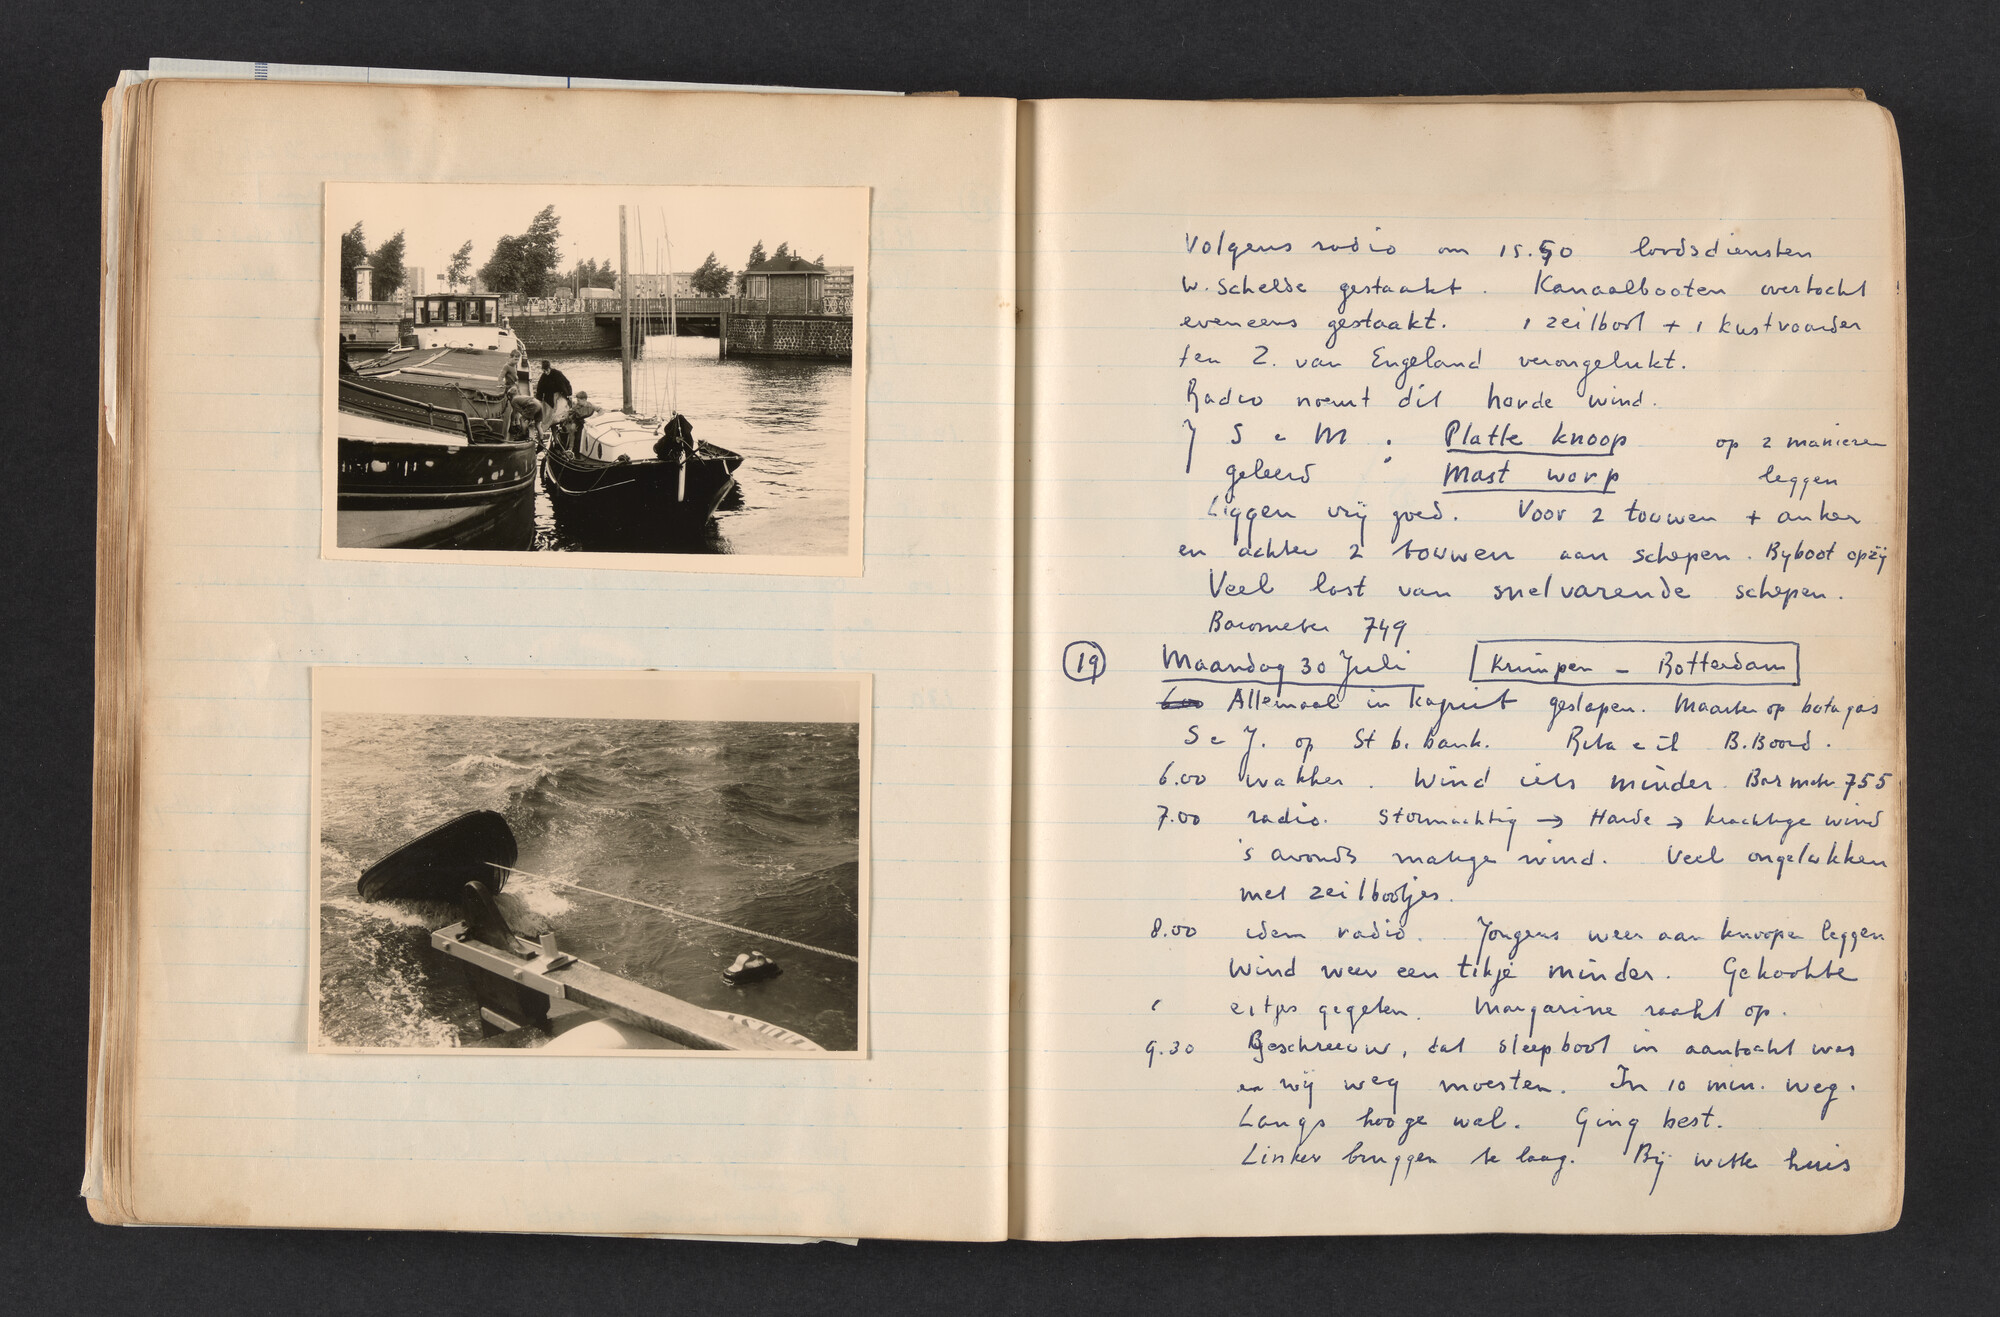 Volgens radio om 15.50 loodsdiensten
W. Schelde gestaakt. Kanaalbooten overtocht
eveneens gestaakt. 1 zeilboot + 1 kustvaarder
ten Z. van Engeland verongelukt.
Radio noemt dit harde wind.
J S e M : Platte knoop op 2 manieren
geleerd : Mast worp leggen
Liggen vrij goed. Voor 2 touwen + anker
en achter 2 touwen aan schepen. Byboot opzij
Veel last van snelvarende schepen.
Barometer 749
19 Maandag 30 Juli Krimpen - Rotterdam
Allemaal in kajuit geslapen. Maarten op botagas
S e J. op St b. bank. Rita e ik B.Boord.
6.00 wakker. Wind iets minder. Bar meter 755
7.00 radio. Stormachtig → Harde → krachtige wind
's avonds matige wind. Veel ongelukken
met zeilbootjes.
8.00 idem radio. Jongens weer aan knoopen leggen
Wind weer een tikje minder. Gekookte
eitjes gegeten. Margarine raakt op.
9.30 Geschreeuw, dat sleepboot in aantocht was
en wij weg moesten. In 10 min. weg.
Langs hooge wal. Ging best.
Linker bruggen te laag. Bij witte huis